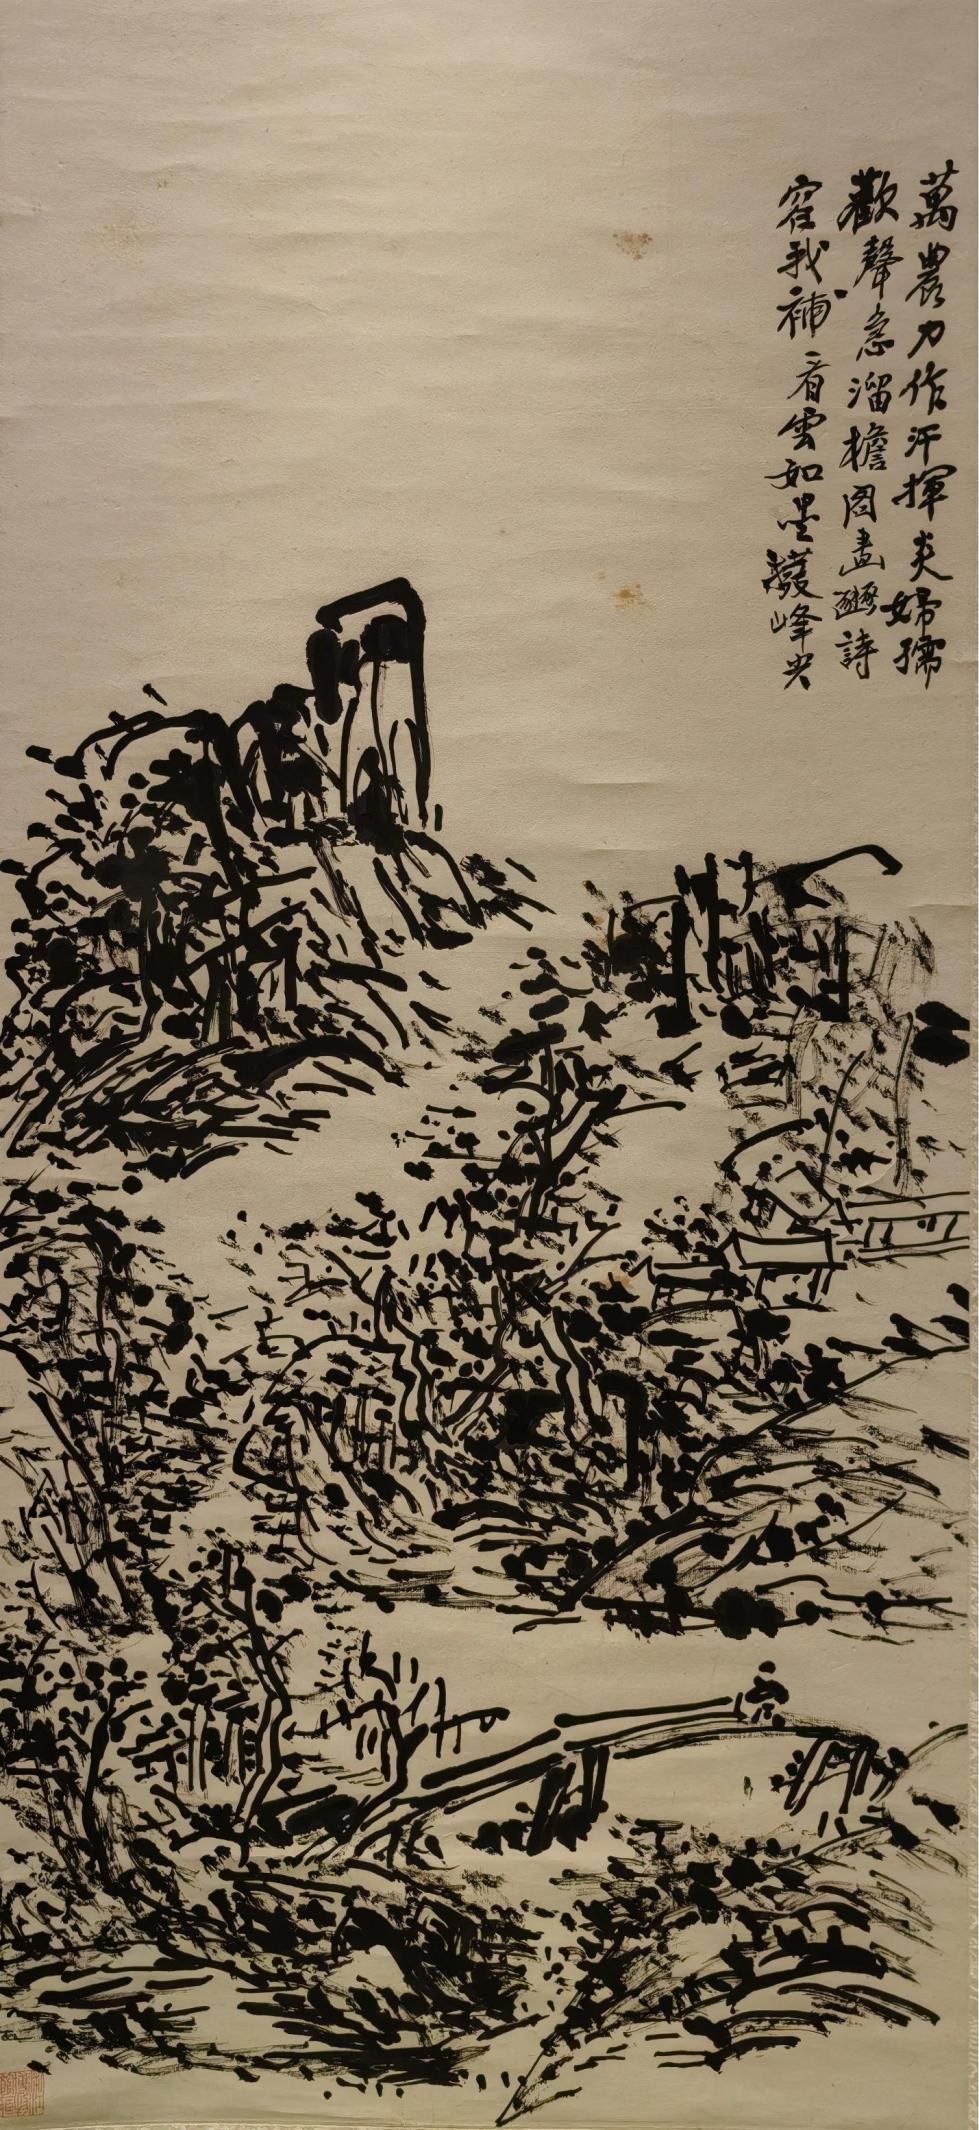 萬農力作汗揮炎婦孺
歡聲急溜檐圖畫豳詩
容我補看雲如墨潑峰尖